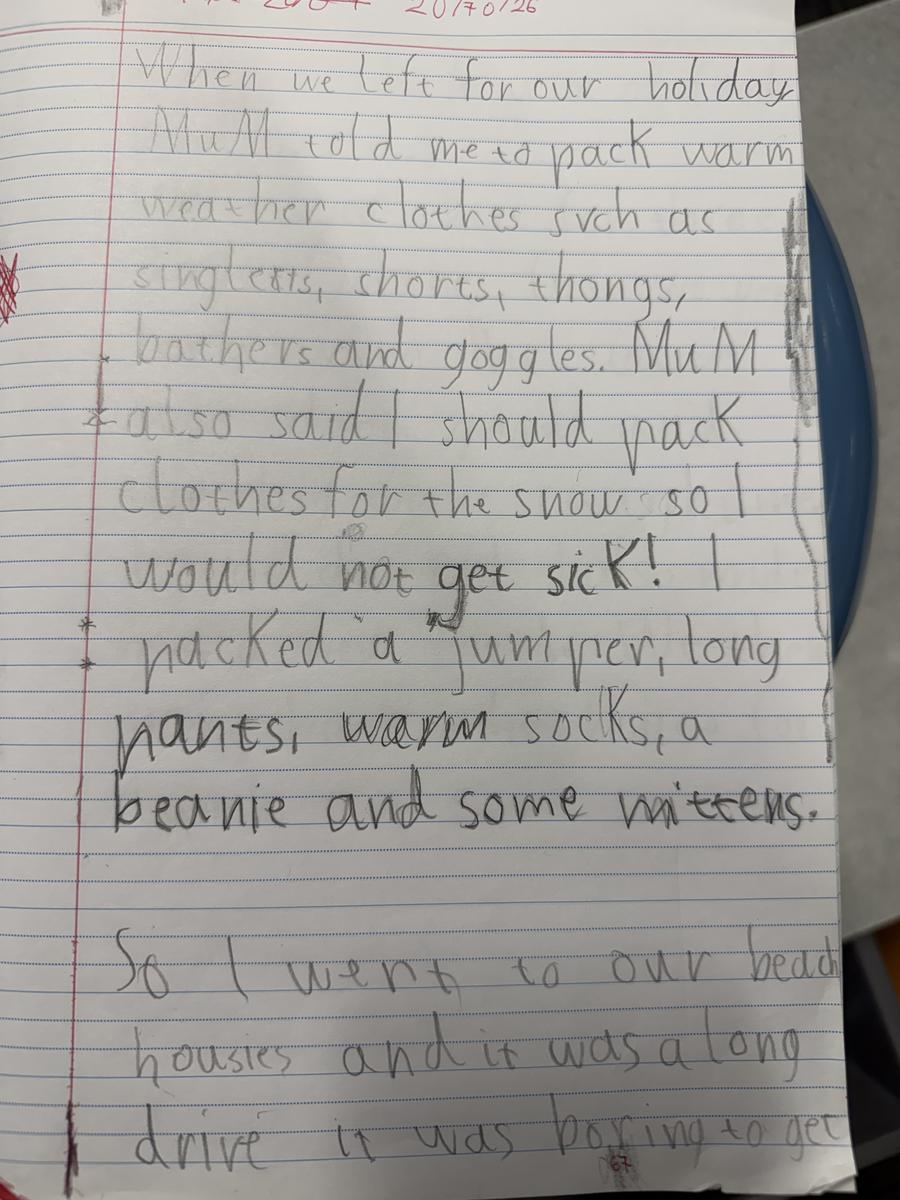 20/10/26
When we left for our holiday
MuM told me to pack warm
weather clothes such as
singlets, shorts, thongs,
bathers and goggles. MuM
also said I should pack
clothes for the snow so I
would not get sick! I
packed a jumper, long
pants, warm socks, a
beanie and some mittens.
So I went to our beach
housies and it was a long
drive it was boring to get
67